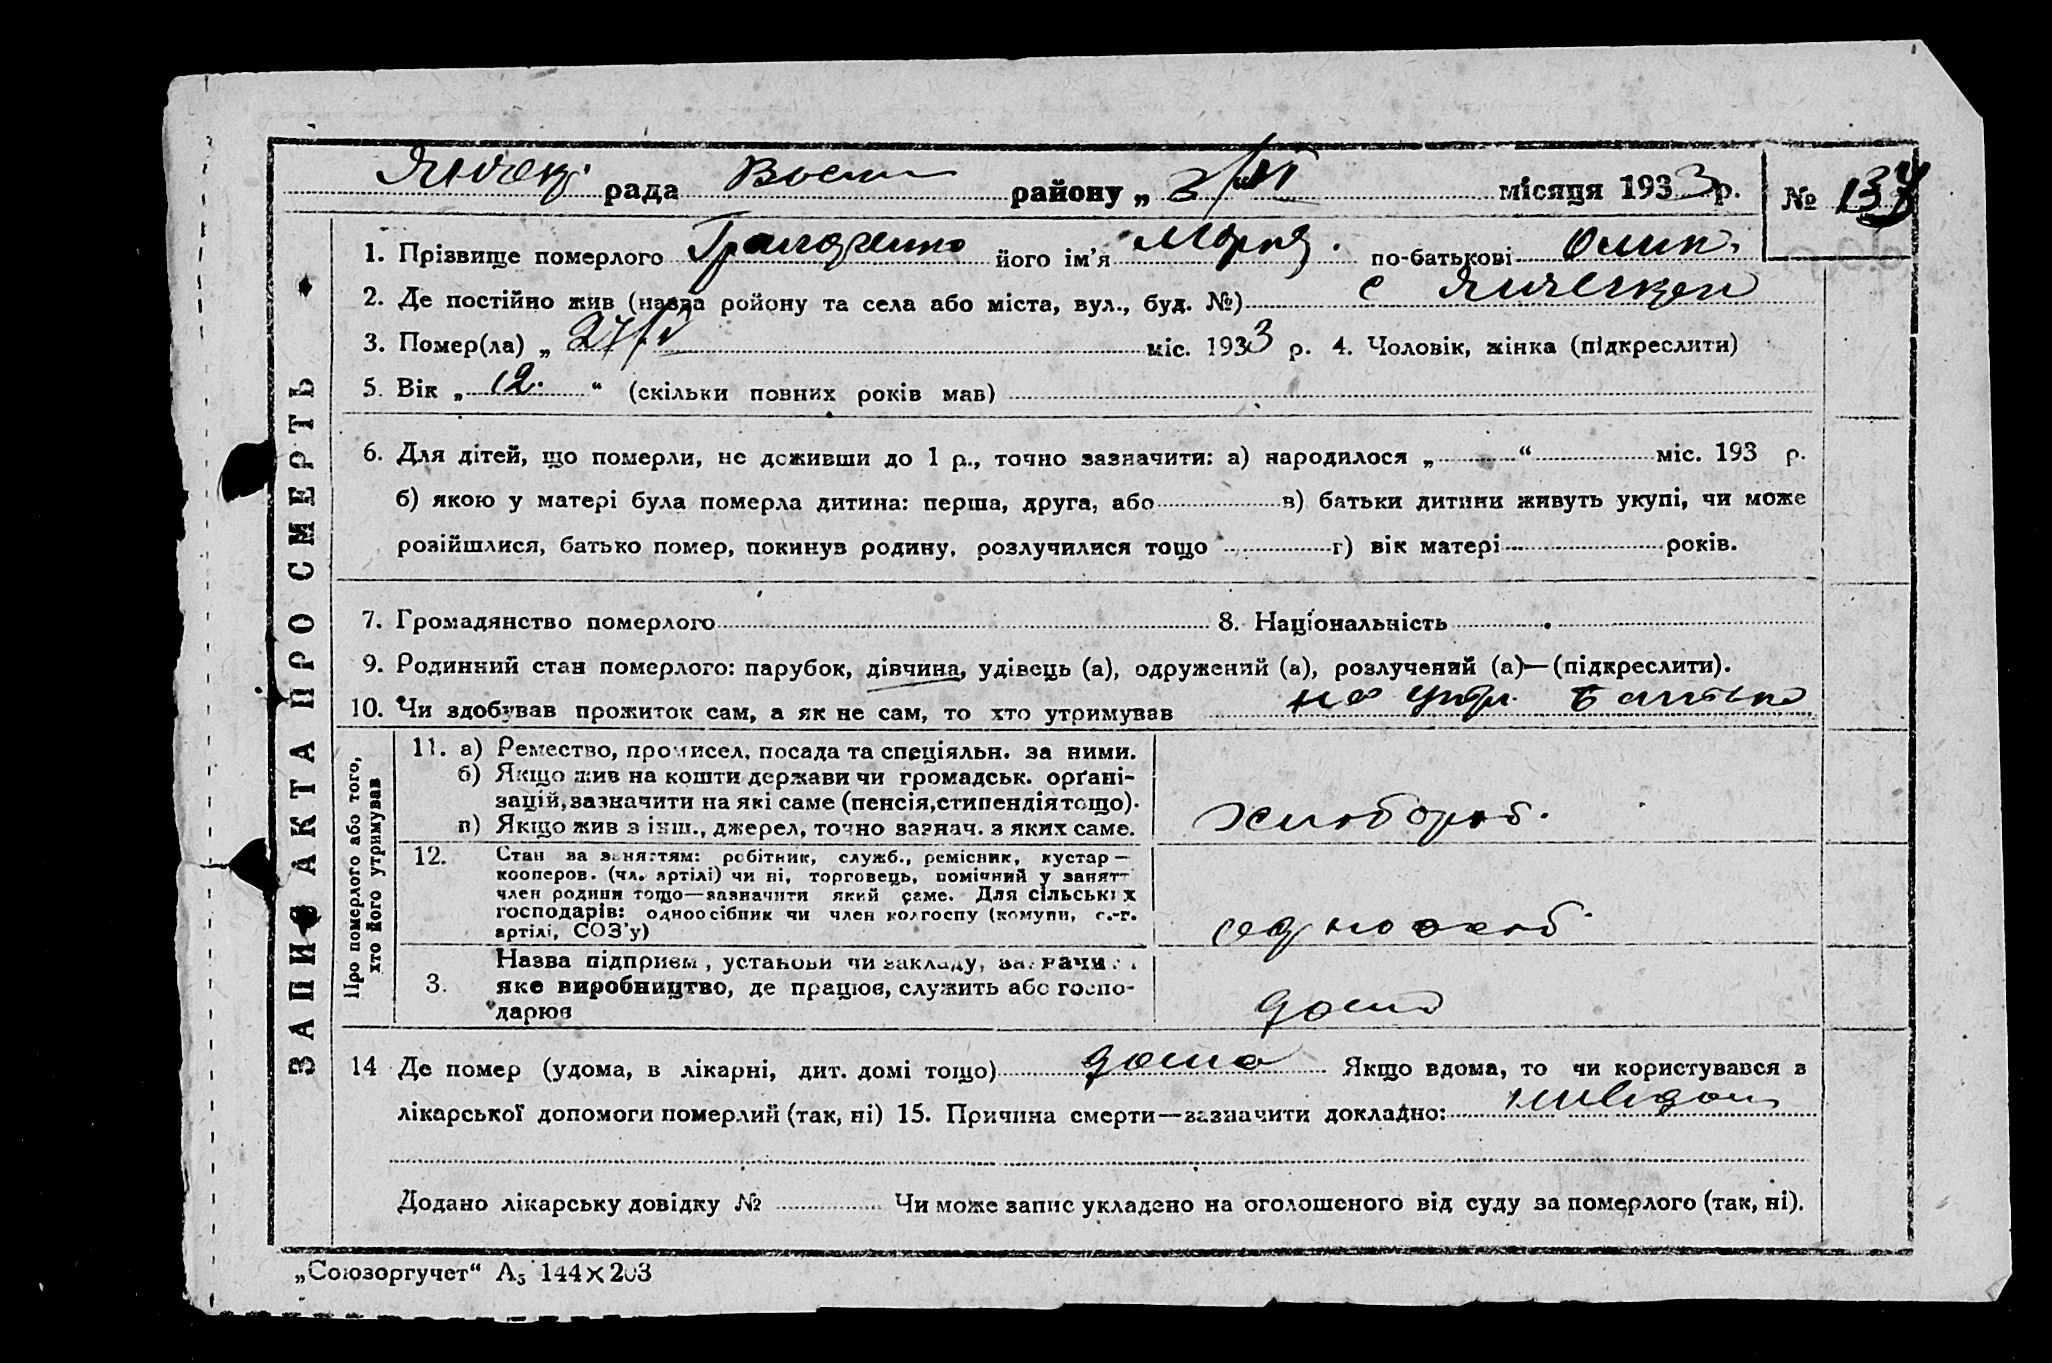 рада району „ місяця 1933 р. № 137
1. Прізвище померлого його ім’я Мария. по-батькові Олип.
2. Де постійно жив (назва ройону та села або міста, вул., буд. №) с
3. Помер(ла) „ 27/V міс. 1933 р. 4. Чоловік, жінка (підкреслити)
5. Вік „ 12. “ (скільки повних років мав)
6. Для дітей, що померли, не доживши до 1 р., точно зазначити: а) народилося „ “ міс. 193 р.
б) якою у матері була померла дитина: перша, друга, або в) батьки дитини живуть укупі, чи може
розійшлися, батько помер, покинув родину, розлучилися тощо г) вік матері років.
7. Громадянство померлого 8. Національність
9. Родинний стан померлого: парубок, дівчина, удівець (а), одружений (а), розлучений (а)—(підкреслити).
10. Чи здобував прожиток сам, а як не сам, то хто утримував на утр. батька
ЗАПИС АКТА ПРО СМЕРТЬ
Про померлого або того,
хто його утримував
11. а) Ремество, промисел, посада та спеціяльн. за ними.
б) Якщо жив на кошти держави чи громадськ. орґані-
зацій, зазначити на які саме (пенсія, стипендія тощо).
в) Якщо жив з інш., джерел, точно зазнач. з яких саме.
хлібороб.
12. Стан за заняттям: робітник, служб., ремісник, кустар —
кооперов. (чл. артілі) чи ні, торговець, помічний у занятт
член родини тощо—зазначити який саме. Для сільських
господарів: одноосібник чи член колгоспу (комуни, с.-г.
артілі, СОЗ’у)
одноосіб
3. Назва підприєм, установи чи закладу,
яке виробництво, де працює, служить або госпо-
дарює
дома
14 Де помер (удома, в лікарні, дит. домі тощо) дома Якщо вдома, то чи користувався з
лікарської допомоги померлий (так, ні) 15. Причина смерти—зазначити докладно: невідом
Додано лікарську довідку № Чи може запис укладено на оголошеного від суду за померлого (так, ні).
„Союзоргучет“ А5 144×203